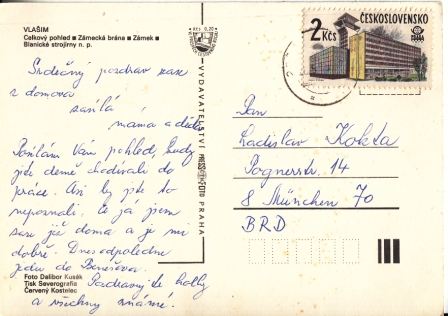 VLAŠIM
Celkový pohled ■ Zámecká brána ■ Zámek ■
Blanické strojírny n. p.
Srdečný pozdrav zase
z domova
zasílá
máma a děti
Posílám Vám pohled, kudy
jste denně chodívali do
práce. Asi by jste to
nepoznali. Že já jsem
zase již doma a je mi
dobře. Dnes odpoledne
jedu do Benešova.
Pozdravuj te holky
a všechny známé.
Foto Dalibor Kusák
Tisk Severografia
Červený Kostelec
Kčs 0,20
VYDAVATELSTVÍ PRESSFOTO PRAHA
2 Kčs
ČESKOSLOVENSKO
PRAGA
Pan
Ladislav Kokta
Pognerstr. 14
8 München 70
BRD